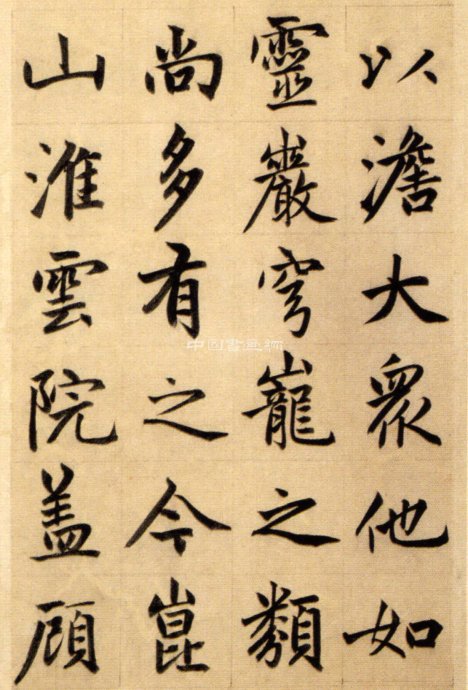 以澹大衆他如
靈巖穹巃之類
尚多有之今崑
山淮雲院盖顧
中国書画网